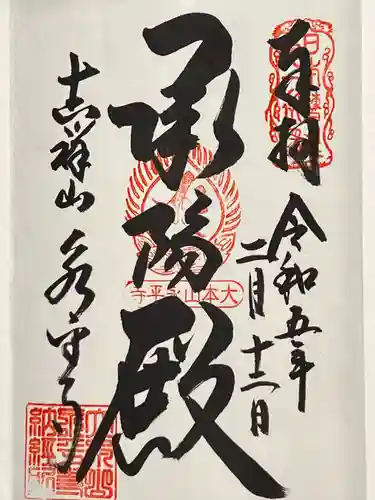 奉拝
令和五年
二月十二日
承陽殿
大本山永平寺
吉祥山 永平寺